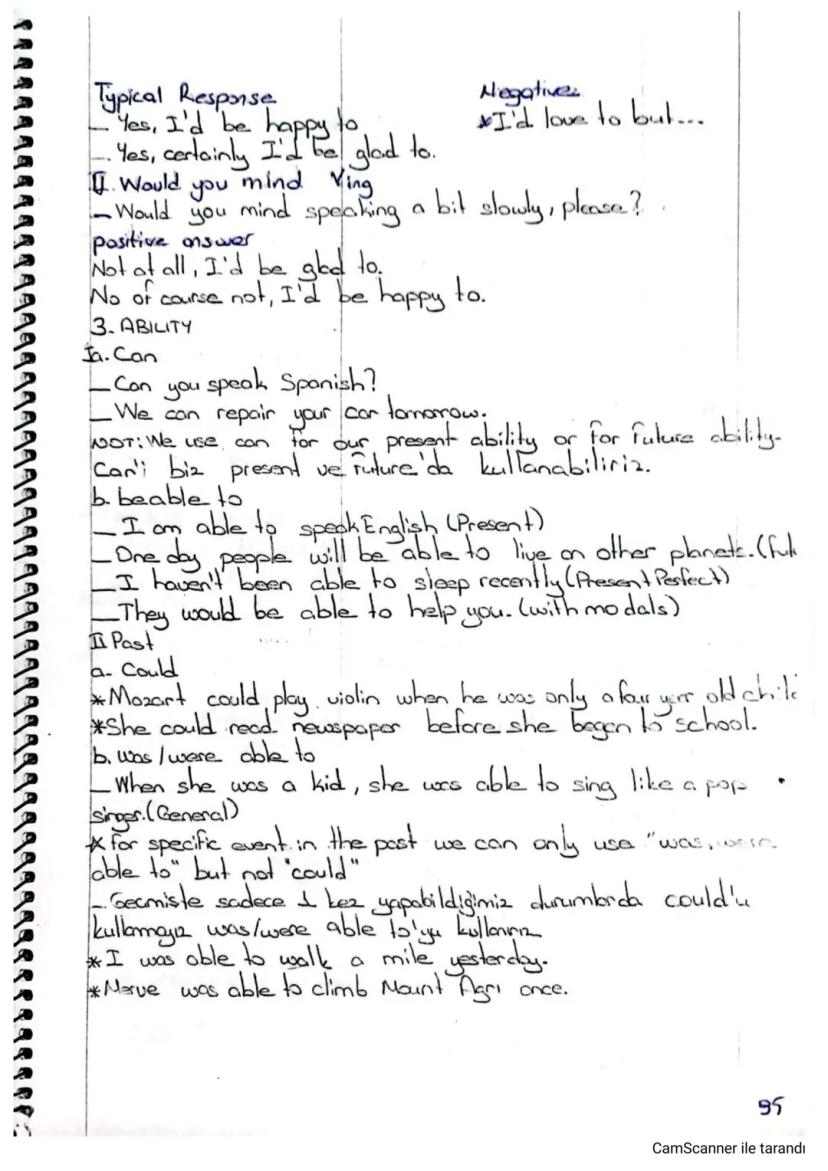 Typical Response
Negatives
— Yes, I'd be happy to
*I'd love to but...
—. Yes, certainly I'd be glad to.
II. Would you mind Ving
— Would you mind speaking a bit slowly, please?
positive answer
Not at all, I'd be glad to.
No of course not, I'd be happy to.
3. ABILITY
Ia. Can
— Can you speak Spanish?
— We can repair your car tomorrow.
NOT: We use can for our present ability or for future ability.
Can'i biz present ve future'da kullanabiliriz.
b. beable to
— I am able to speak English (Present)
— One day people will be able to live on other planets. (fut
— I haven't been able to sleep recently (Present Perfect)
— They would be able to help you. (with modals)
II Past
a. Could
*Mozart could play violin when he was only a four year old chil
*She could read newspaper before she began to school.
b. was / were able to
— When she was a kid, she was able to sing like a pop
singer. (General)
* For specific event in the past we can only use "was, were
able to" but not "could"
— Gecmiste sadece 1 kez yapabildiğimiz durumlarda could'u
kullanmayız was/were able to'yu kullanırız
* I was able to walk a mile yesterday.
* Merve was able to climb Mount Agrı once.
95
CamScanner ile tarandı